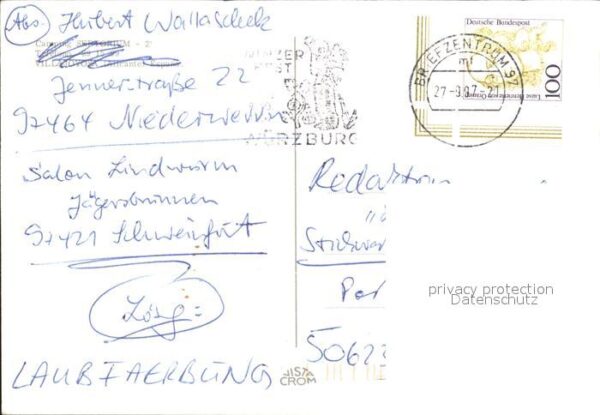 Abs. Herbert Wallaschek
Jennerstraße 22
97464 Niederwerrn
Salon Lindwurm
Jägersbrunnen
97421 Schweinfurt
Lösg:
LAUBFAERBUNG
WÜRZBURG
Deutsche Bundespost
100
BRIEFZENTRUM 97
mf
27-9.97-21
Redaktion
Stichwort
50622
privacy protection
Datenschutz
CROM